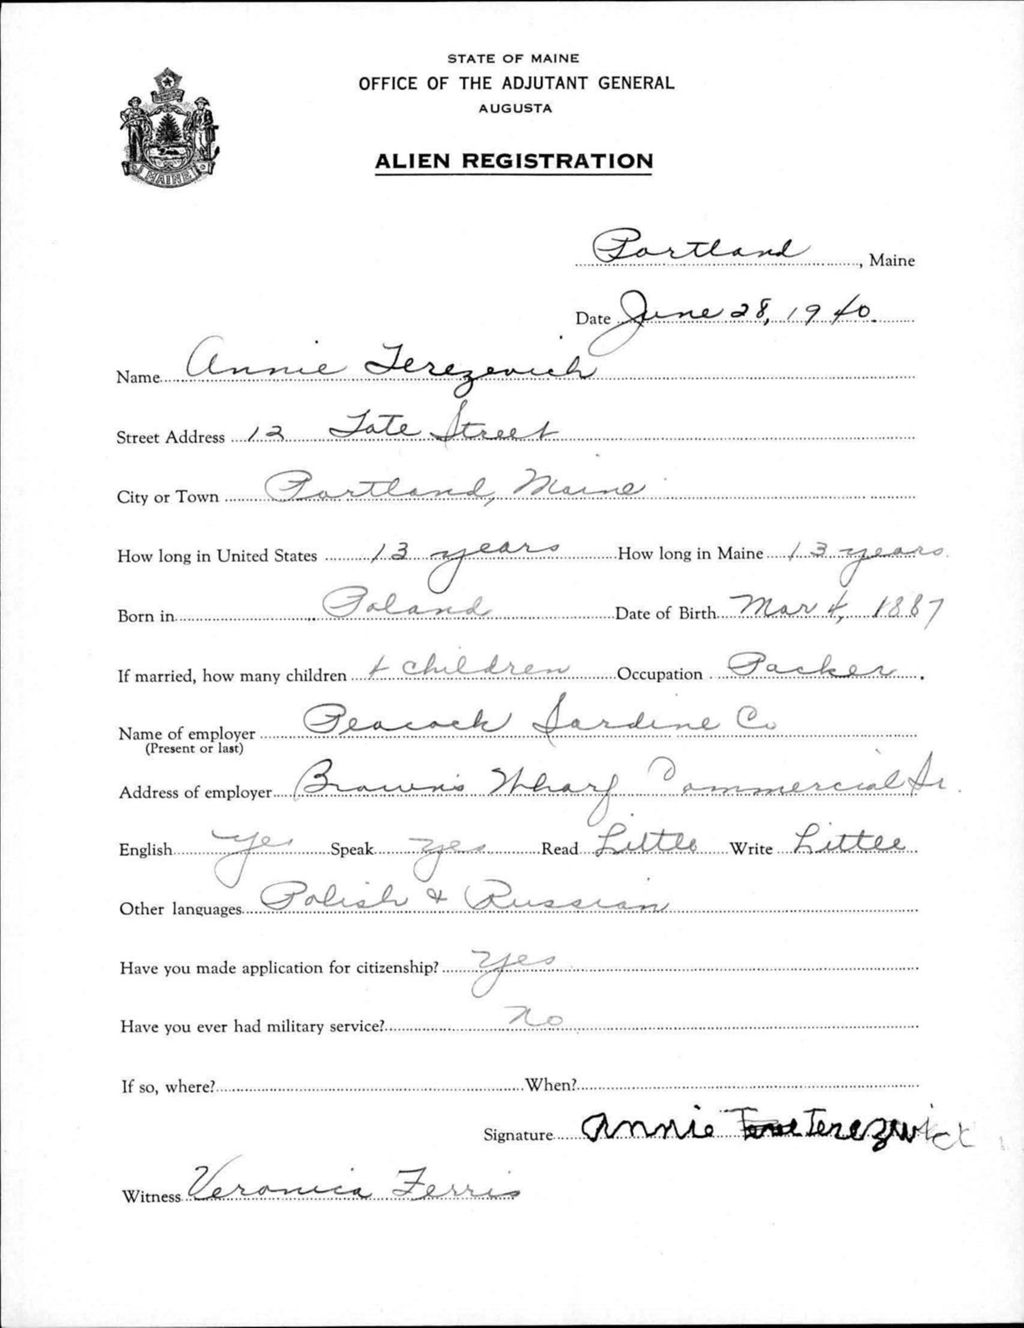 STATE OF MAINE
OFFICE OF THE ADJUTANT GENERAL
AUGUSTA
ALIEN REGISTRATION
MAINE
Portland, Maine
Date June 28, 1940.
Name Annie Terezevich
Street Address 12 Tate Street
City or Town Portland, Maine
How long in United States 13 years How long in Maine 13 years
Born in Poland Date of Birth Mar 4, 1887
If married, how many children 4 children Occupation Packer
Name of employer Peacock Sardine Co
(Present or last)
Address of employer Brown's Wharf Commercial St.
English yes Speak yes Read Little Write Little
Other languages Polish & Russian
Have you made application for citizenship? Yes
Have you ever had military service? No
If so, where? When?
Signature Annie
Witness Veronica Ferris